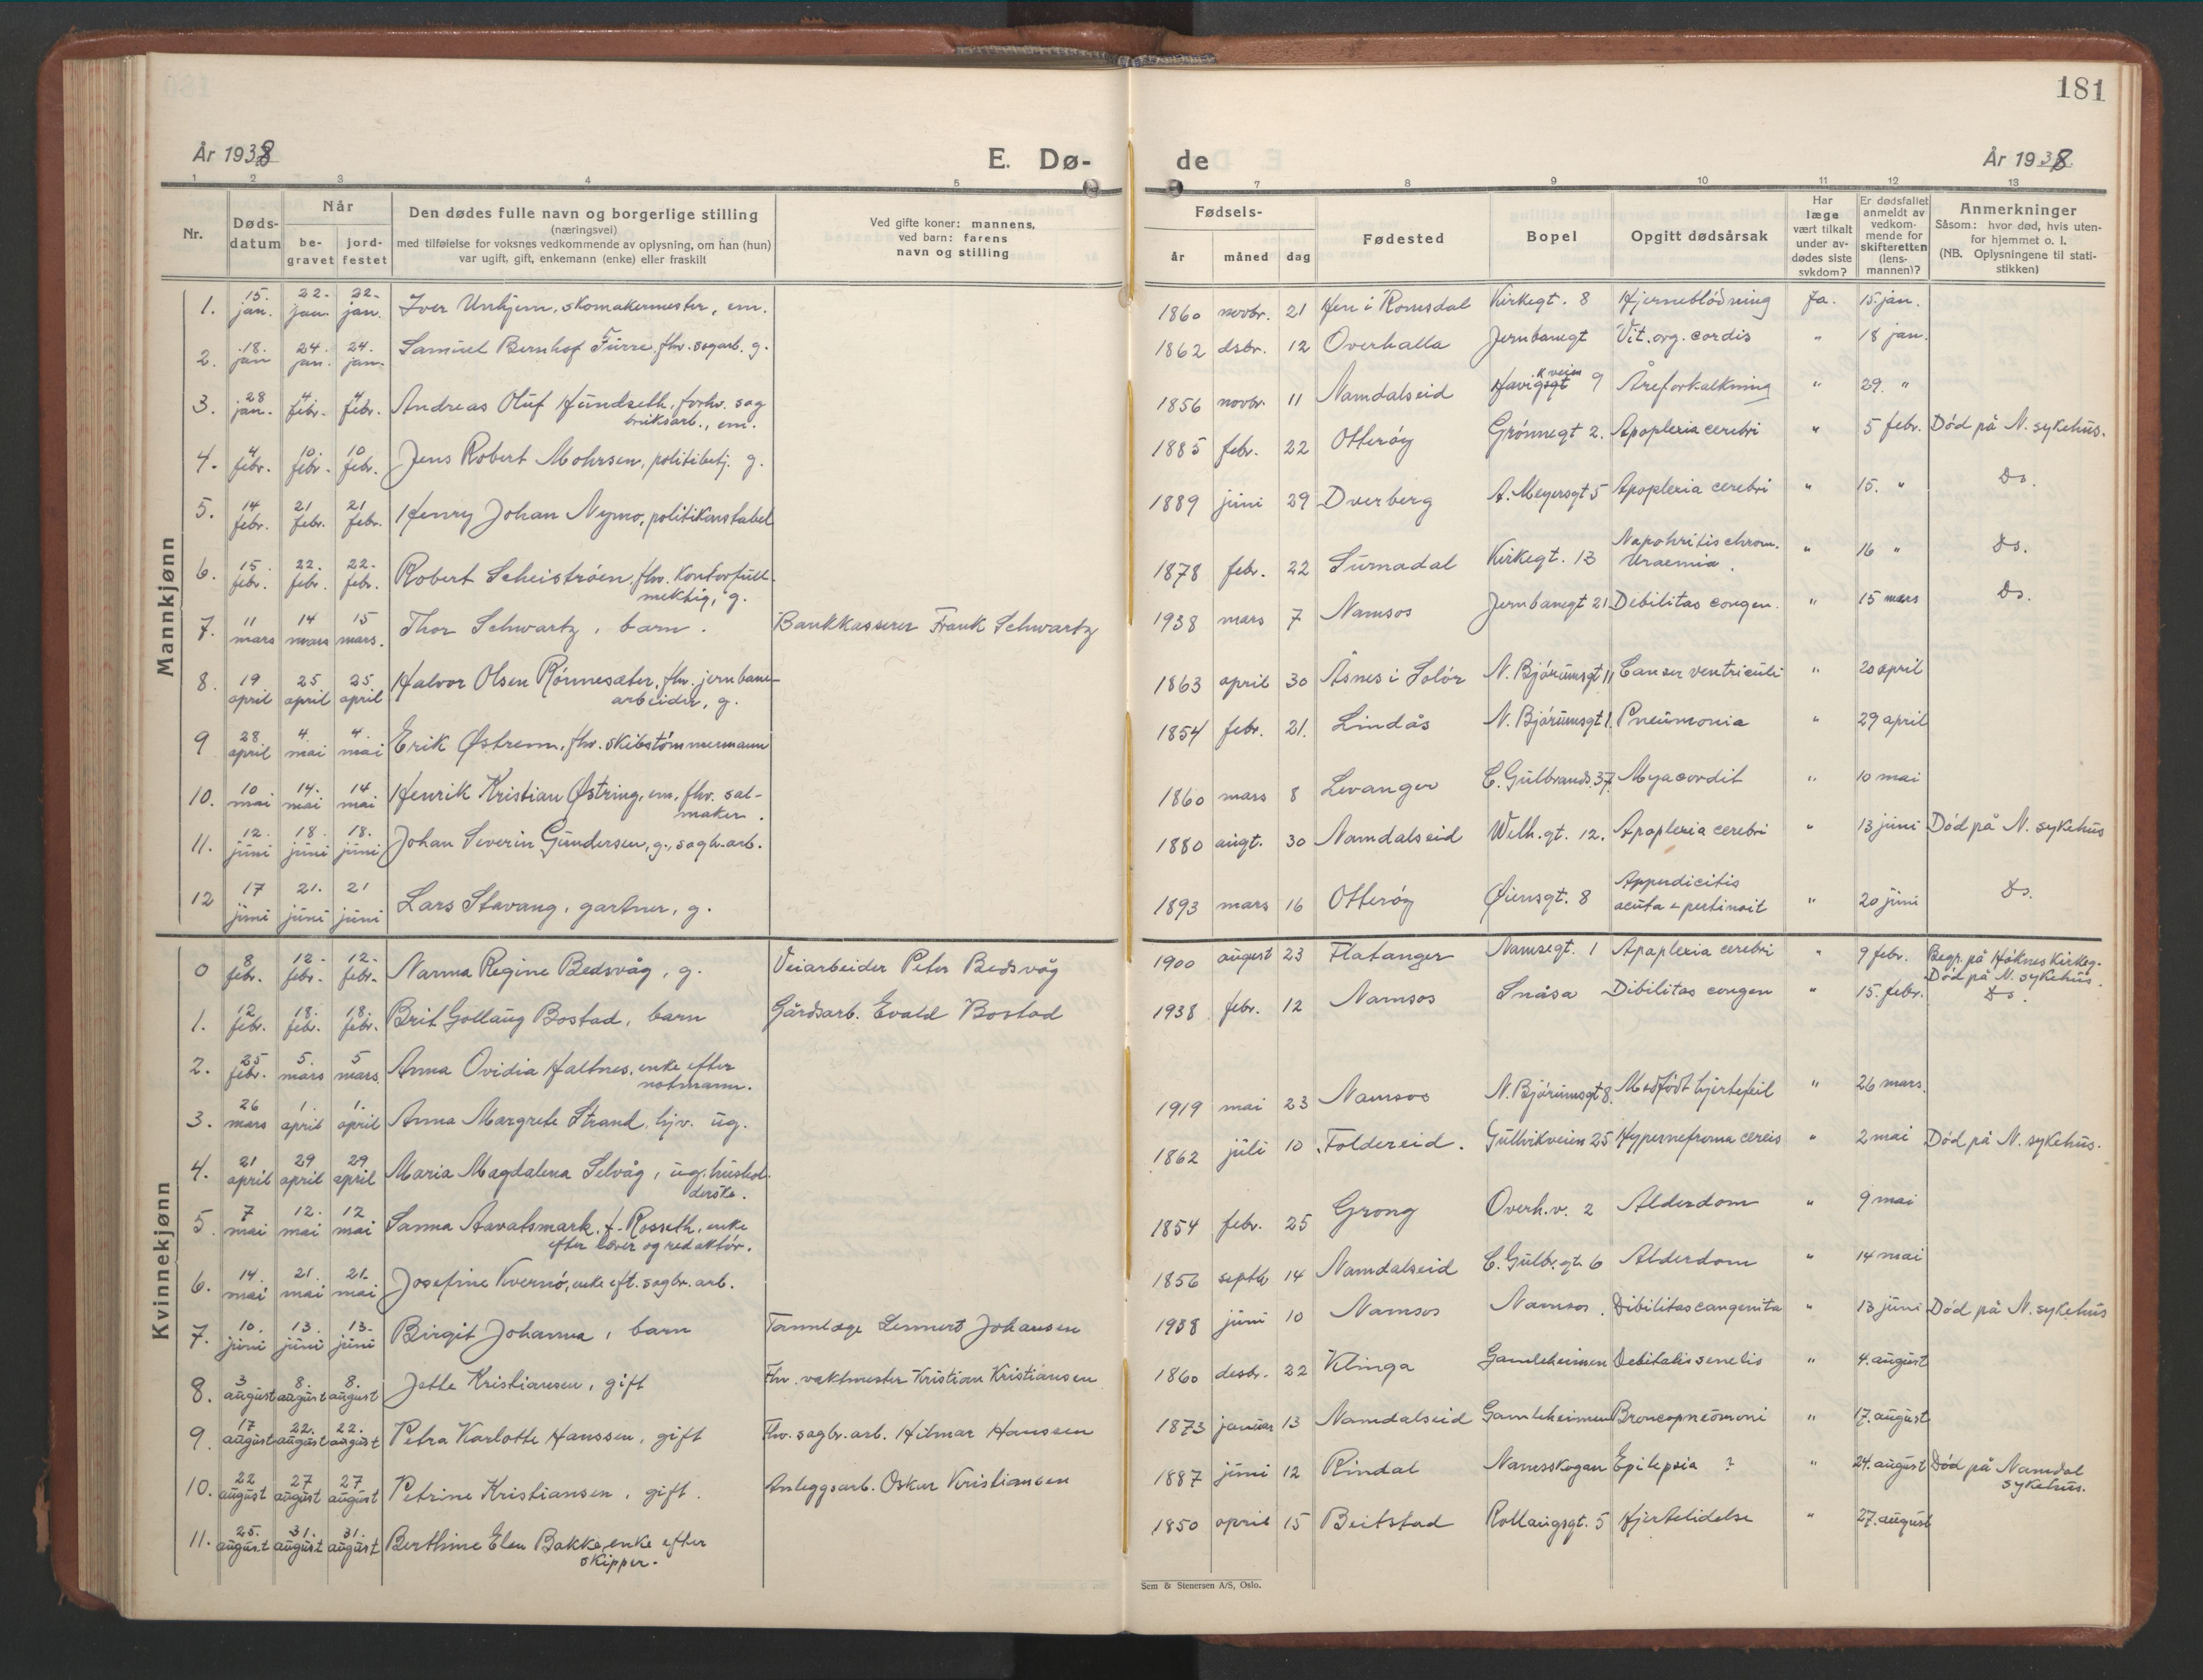 181
År 1938
E. Dø-
de
År 1938
1 2 3 4 5
7 8 9 10 11 12 13
Nr.
Døds-
datum
Når
be-
gravet
jord-
festet
Den dødes fulle navn og borgerlige stilling
(næringsvei)
med tilføielse for voksnes vedkommende av oplysning, om han (hun)
var ugift, gift, enkemann (enke) eller fraskilt
Ved gifte koner: mannens,
ved barn: farens
navn og stilling
Fødsels-
år måned dag
Fødested
Bopel
Opgitt dødsårsak
Har
læge
vært tilkalt
under av-
dødes siste
sykdom?
Er dødsfallet
anmeldt av
vedkom-
mende for
skifteretten
(lens-
mannen)?
Anmerkninger
Såsom: hvor død, hvis uten-
for hjemmet o. l.
(NB. Oplysningene til stati-
stikken)
Mannkjønn
1. 15. jan. 22. jan. 22. jan. Iver Unhjem, skomakermester, em. 1860 novbr. 21 Hen i Romsdal Kirkegt. 8 Hjerneblödning Ja. 15 jan.
2. 18. jan 24. jan. 24. jan. Samuel Bernhof Furre, fhv. sagarb. g. 1862 dsbr. 12 Overhalla Jernbanegt Vit. org. cordis " 18 jan.
3. 28 jan. 4. febr. 4. febr. Andreas Oluf Hundseth, forhv. sag
bruksarb., em. 1856 novbr. 11 Namdalseid Havikveien 9 Åreforkalkning " 29. "
4. 4 febr. 10. febr. 10 febr. Jens Robert Mohrsen, politibetj. g. 1885 febr. 22 Otterøy Grønnegt 2. Apoplexia cerebri " 5 febr. Död på N. sykehus.
5. 14 febr. 21 febr. 21 febr. Henry Johan Nymo, politikonstabel 1889 juni 29 Dverberg A. Meyersgt 5 Apoplexia cerebri " 15. " Do.
6. 15. febr. 22. febr. 22. febr. Robert Scheiströen, fhv. kontorfull-
mektig, g. 1878 febr. 22 Surnadal Kirkegt. 13 Napohritis chron.
Uraemia. " 16 " Do.
7. 11 mars 14 mars 15 mars. Thor Schwartz, barn. Bankkasserer Frank Schwartz 1938 mars 7 Namsos Jernbanegt 21 Debilitas congen. " 15 mars Do.
8. 19 april 25 april 25 april Halvor Olsen Rönnesæter, fhv. jernbane-
arbeider, g. 1863 april 30 Åsnes i Solör N. Bjørumsgt 11 Canser ventriculi " 20 april
9 28 april 4. mai 4. mai Erik Østrem, fhv. skibstömmermann 1854 febr. 21. Lindås N. Bjørumsgt 1. Pneumonia " 29 april
10. 10 mai 14. mai 14 mai Henrik Kristian Østring, em. fhv. sal-
maker. 1860 mars 8 Levanger C. Gulbrands. 37. Myacordit " 10 mai
11. 12. juni 18. juni 18. juni Johan Severin Gundersen, g., sagb. arb. 1880 augt. 30 Namdalseid Welh. gt. 12. Apoplexia cerebri " 13 juni Död på N. sykehus
12 17 juni 21. juni 21 juni Lars Stavang, gartner, g. 1893 mars 16 Otteröy Øiensgt. 8 Appendicitis
acuta + pertinoit " 20 juni Do.
Kvinnekjønn
0 8 febr. 12. febr. 12. febr. Narma Regine Bedsvåg, g. Veiarbeider Peter Bedsvåg 1900 august 23 Flatanger Namsegt. 1 Apaplexia cerebri " 9 febr. Begr. på Höknes Kirkeg.
Död på N. sykehus.
1. 12 febr. 18. febr. 18. febr. Brit Gollaug Bostad, barn Gårdsarb. Evald Bostad 1938 febr. 12 Namsos Snåsa Dibilitas congen " 15. febr. Do.
2. 25 febr. 5. mars 5 mars Anna Ovidia Haltnes, enke efter
notmann.
3. 26 mars 1. april 1. april Anna Margrete Strand, hjv. ug. 1919 mai 23 Namsos N. Bjørumsgt 8. Medfödt hjertefeil " 26 mars.
4. 21 april 29 april 29 april Maria Magdalena Selvåg, ug. hushol-
derske. 1862 juli 10 Foldereid. Gullvikveien 25 Hypernefroma cereis " 2 mai Död på N. sykehus.
5 7 mai 12. mai 12 mai Sanna Aavatsmark, f. Rosseth, enke
efter lærer og redaktör. 1854 febr. 25 Grong Overh. v. 2 Alderdom " 9 mai
6. 14. mai 21. mai 21. mai Josefine Kvernö, enke eft. sagbr. arb. 1856 septbr 14 Namdalseid C. Gulbr. gt. 6 Alderdom " 14 mai
7. 10. juni 13. juni 13. juni Birgit Johanna, barn Tannlæge Lennert Johansen 1938 juni 10 Namsos Namsos. Dibilitas cangenita " 13 juni Död på N. sykehus
8. 3 august 8. august 8. august Jette Kristiansen, gift Fhv. vaktmester Kristian Kristiansen 1860 desbr. 22 Klinga Gamleheimen Debitatis senelis " 4. august
9. 17 august 22. august 22. august Petra Karlotte Hanssen, gift Fhv. sagbr. arb. Hilmar Hanssen 1873 januar 13 Namdalseid Gamleheimen Broncopneumoni " 17. august
10. 22 august 27 august 27 august Petrine Kristiansen, gift. Anleggsarb. Oskar Kristiansen 1887 juni 12 Rindal Namsskogan Epilepsia ? " 24. august Död på Namdal
sykehus.
11. 25. august 31. august 31. august Berthine Elen Bakke, enke efter
skipper. 1850 april 15 Beitstad Rollaugsgt. 5 Hjertelidelse " 27. august
Sem & Stenersen A/S, Oslo.